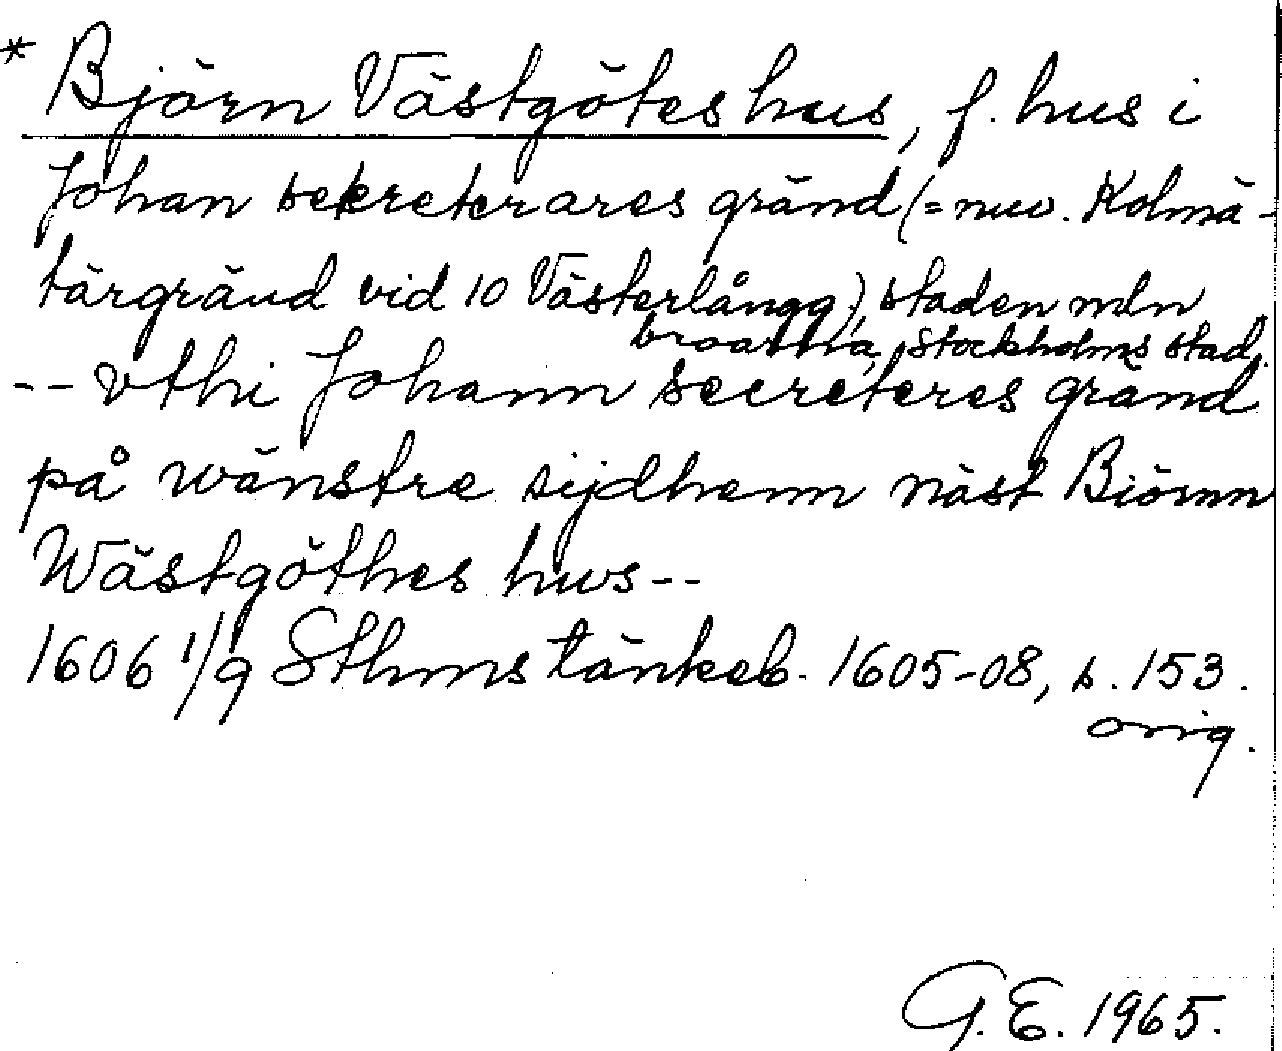 * Björn Västgötes hus, f. hus i
Johan sekreterares gränd (= nuv. Kolmä-
targränd vid 10 Västerlångg), staden mln
broarna, Stockholms stad.
-- vthi Johann secreteres gränd
på wänstre sijdhenn näst Biörnn
Wästgöthes hws--
1606 1/9 Sthms tänkeb. 1605-08, s. 153.
orig.
G. E. 1965.